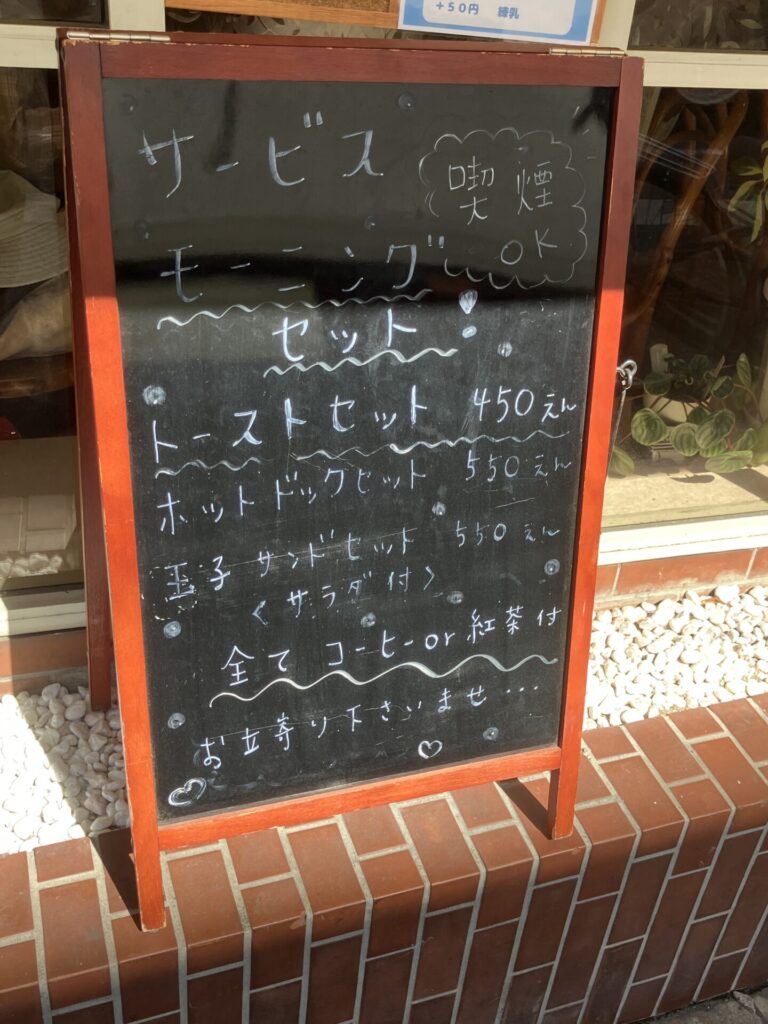 +50円 練乳
サービス
喫煙
OK
モーニング
セット
トーストセット 450えん
ホットドックセット 550えん
玉子サンドセット 550えん
<サラダ付>
全てコーヒーor紅茶付
お立寄り下さいませ…